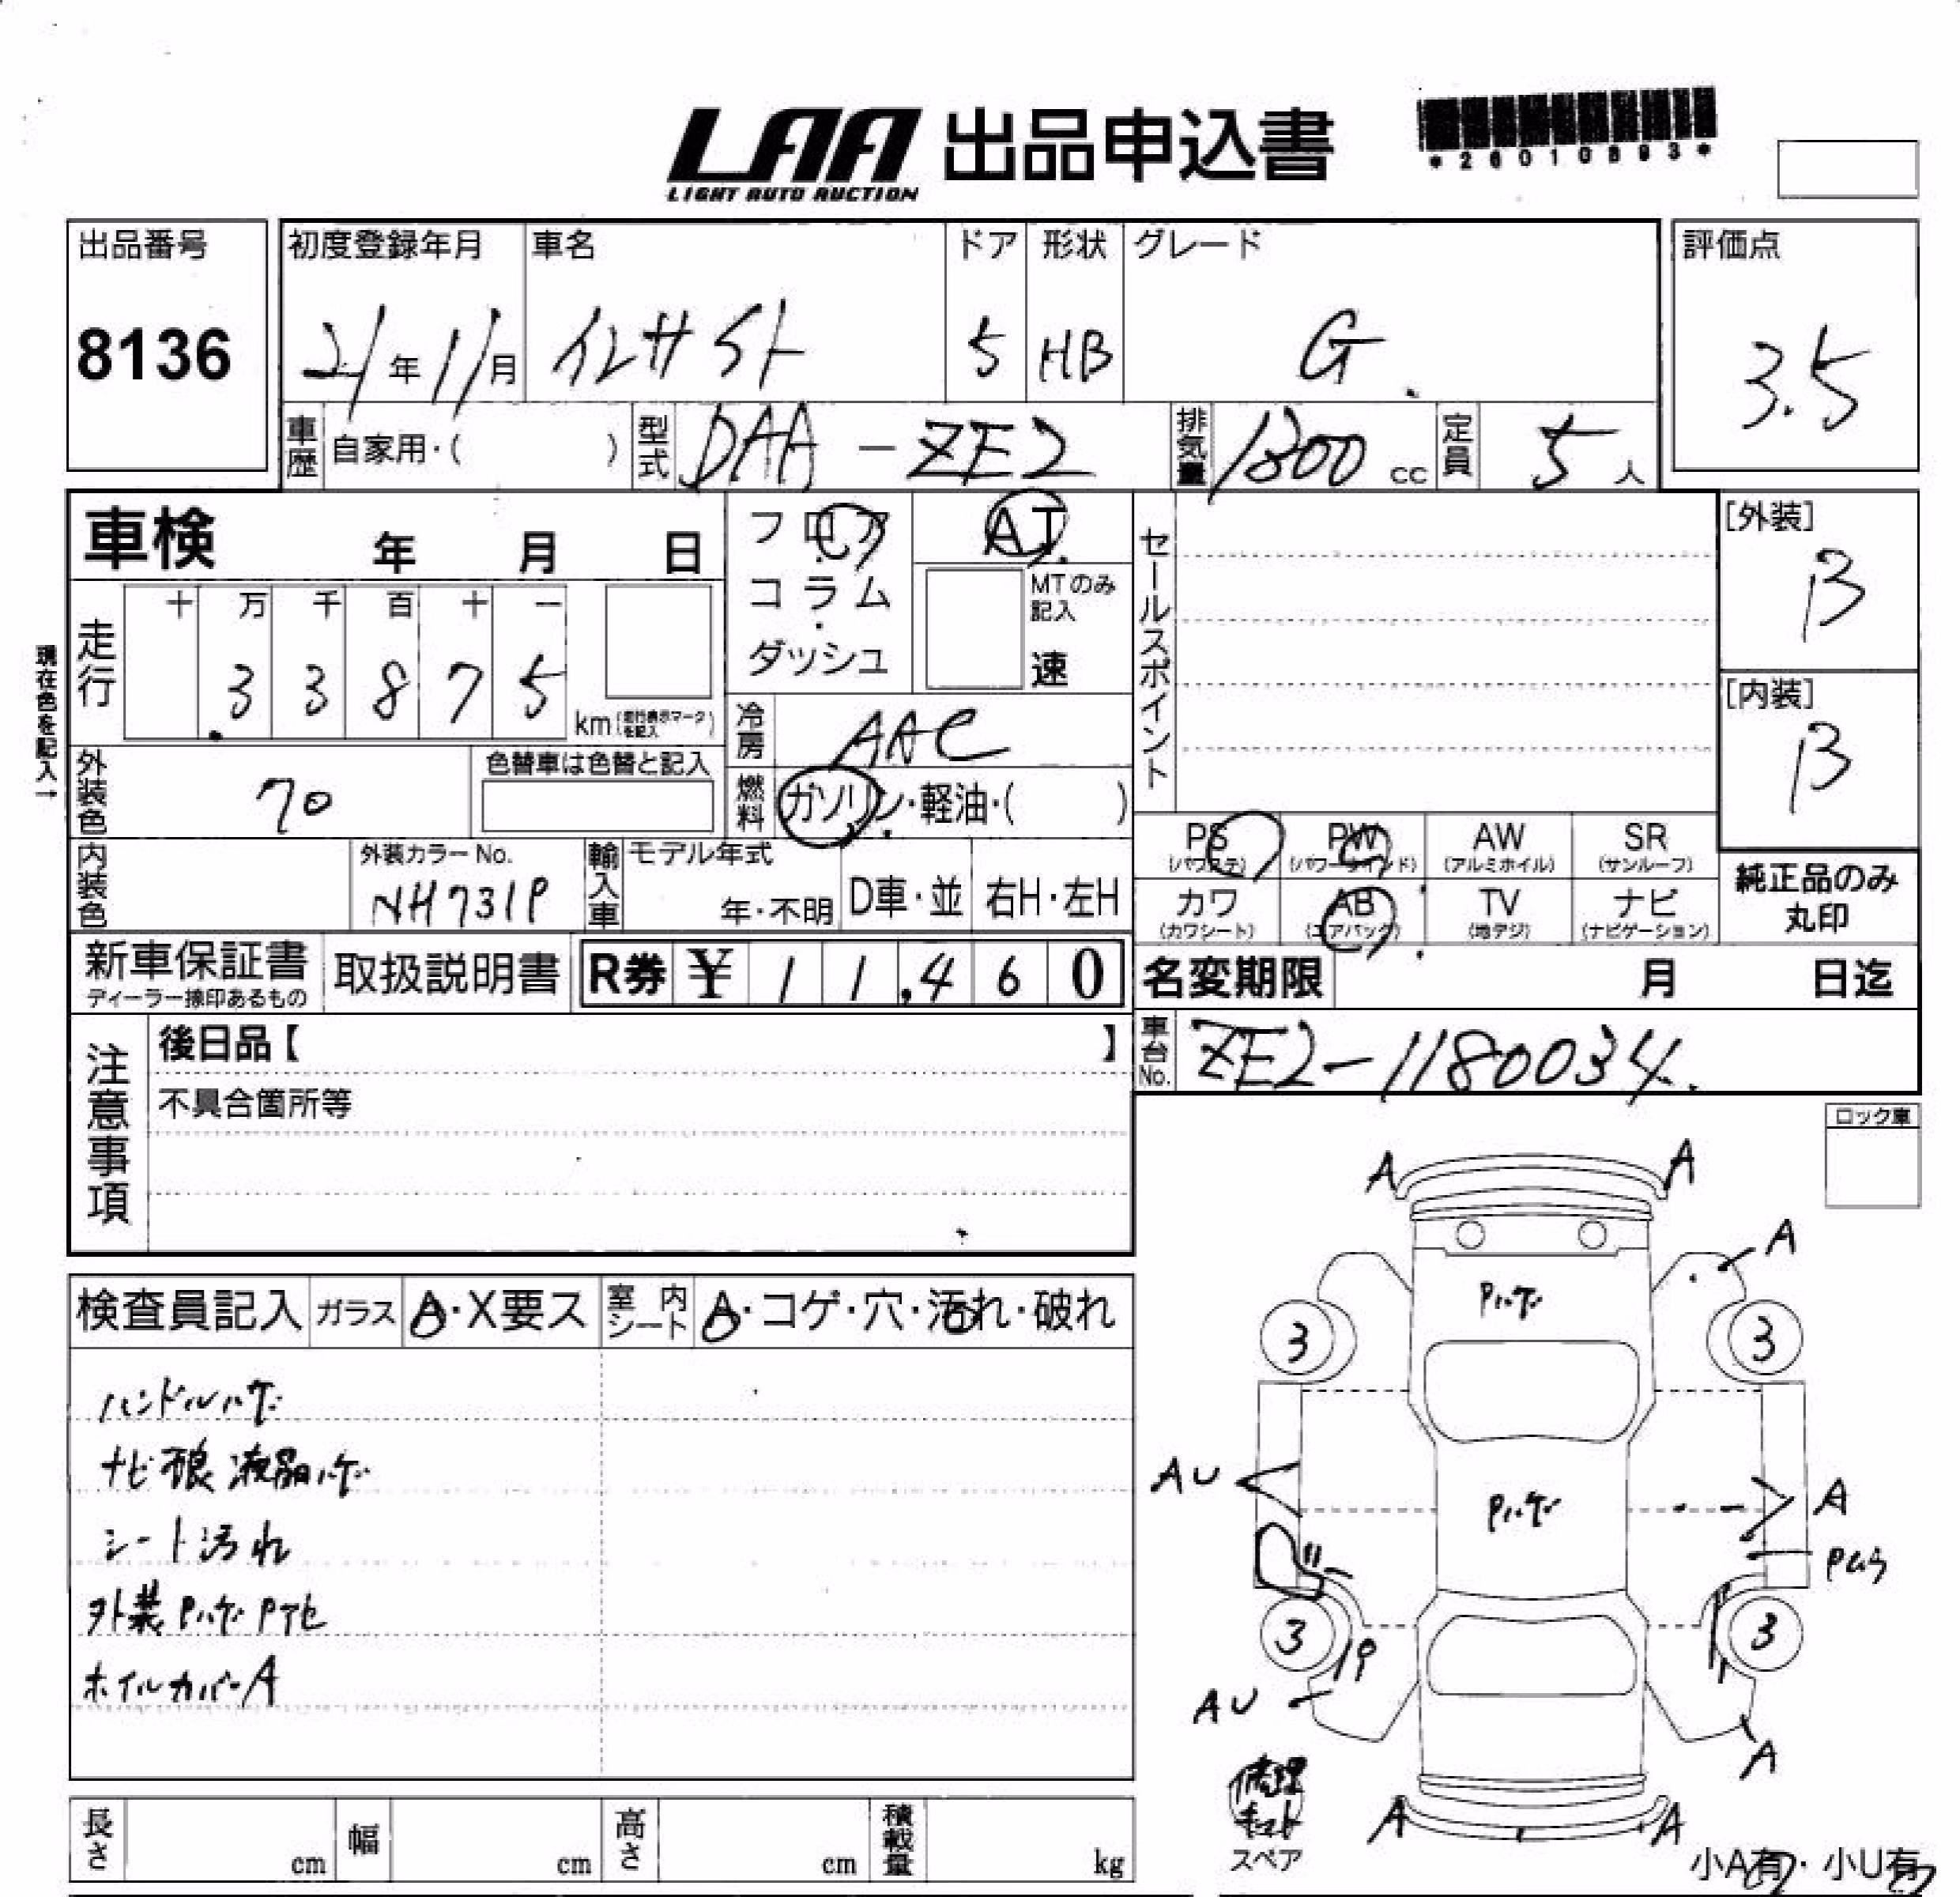 LAA 出品申込書
LIGHT AUTO AUCTION
*26010893*
出品番号 初度登録年月 車名 ドア 形状 グレード 評価点
8136 21年11月 インサイト 5 HB G 3.5
車歴 自家用・( ) 型式 DAA-ZE2 排気量 1300cc 定員 5人
車検 年 月 日
フロア
コラム
ダッシュ
AT
MTのみ記入
速
セールスポイント
[外装]
B
[内装]
B
現在色を記入→
走行 十 万 千 百 十 一
3 3 8 7 5 km(走行表示マークを記入)
冷房 AAC
外装色 70 色替車は色替と記入
燃料 ガソリン・軽油・( )
PS PW AW SR
(パワステ) (パワーウインド) (アルミホイル) (サンルーフ)
カワ AB TV ナビ
(カワシート) (エアバック) (地デジ) (ナビゲーション)
純正品のみ
丸印
内装色 外装カラーNo. 輸入車 モデル年式
NH731P 年・不明 D車・並 右H・左H
新車保証書 取扱説明書 R券 ¥ 11,460
ディーラー捺印あるもの
名変期限 月 日迄
注意事項
後日品【 】
不具合箇所等
車台No. ZE2-1180034
ロック車
検査員記入 ガラス A・X要ス 室内シート A・コゲ・穴・汚れ・破れ
ハンドルハゲ
ナビ 液晶ハゲ
シート汚れ
外装Pハゲ Pアセ
ホイルカバーA
A A
A
Pハゲ
3 3
AU A
Pハゲ
Pムラ
3 3
AU A
A A
修理キット
スペア
小A有・小U有
長さ cm 幅 cm 高さ cm 積載量 kg